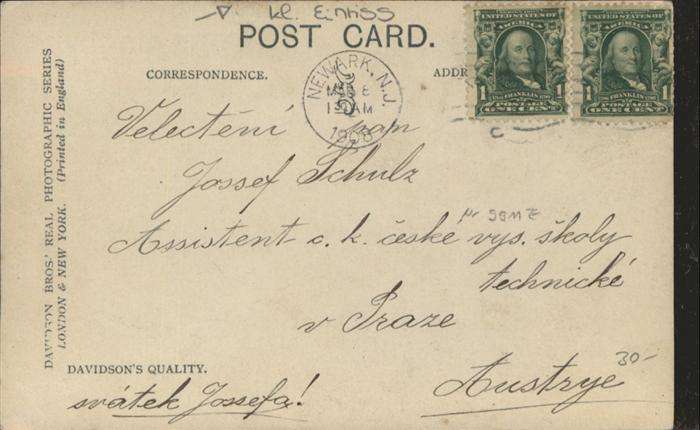 kl. Einriss
POST CARD.
CORRESPONDENCE.
ADDR
NEWARK, N.J.
AM
1908
UNITED STATES OF AMERICA
1 FRANKLIN 1
POSTAGE
ONE CENT
UNITED STATES OF AMERICA
1 FRANKLIN 1
POSTAGE
ONE CENT
DAVIDSON BROS.' REAL PHOTOGRAPHIC SERIES
LONDON & NEW YORK. (Printed in England)
Velectění pan
Jossef Schulz
Assistent c. k. české vys. školy
technické
v Praze
Austrye
30-
DAVIDSON'S QUALITY.
svátek Jossefa!